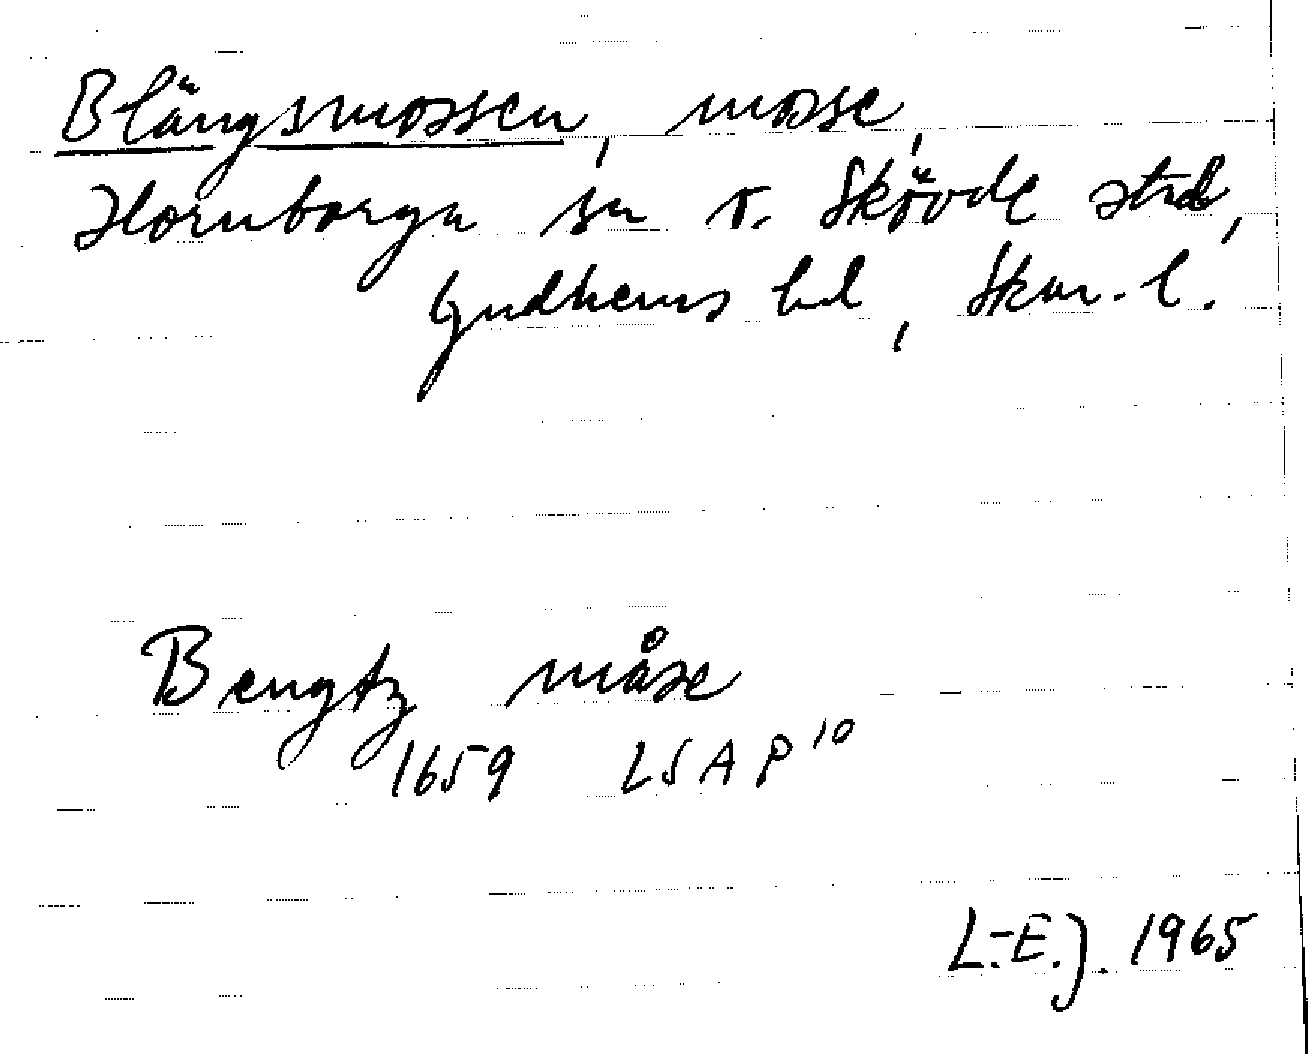 Blängsmossen, mosse,
Hornborga sn o. Skövde stad,
Gudhems hd, Skar. l.
Bengtz måse
1659 LSA P 10
L.-E. J. 1965